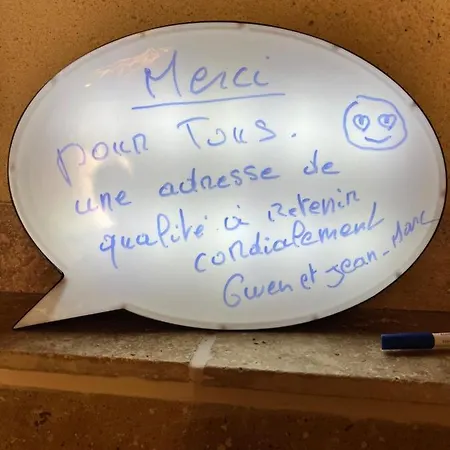 Merci
pour Tous.
une adresse de
qualité à Retenir
cordialement
Gwen et Jean-Marc